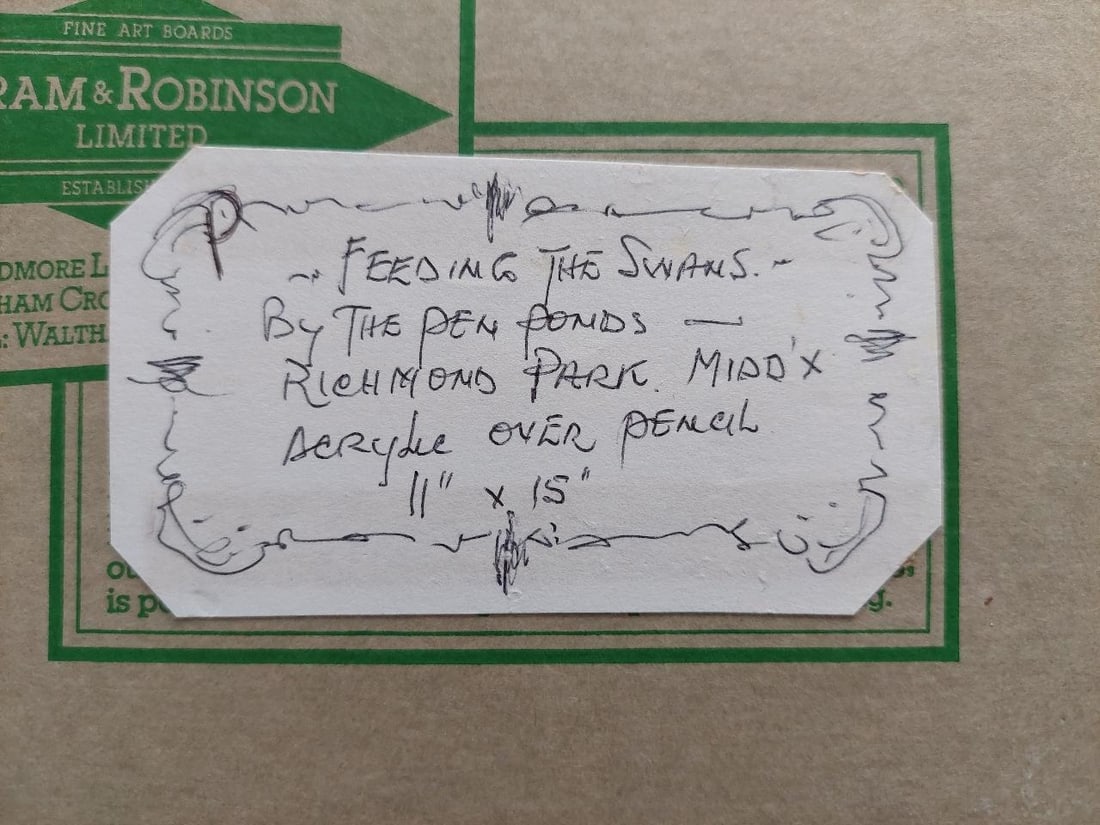 FINE ART BOARDS
RAM & ROBINSON
LIMITED
ESTABLIS
DMORE L
HAM CRO
: WALTH
~ FEEDING THE SWANS. ~
By THE PEN PONDS —
RICHMOND PARK. MIDD'X
ACRYLIC OVER PENCIL
11" x 15"
is p
g.